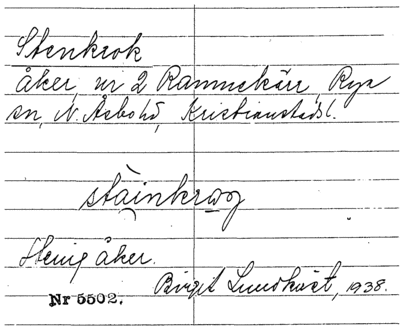 Stenkrok
åker, nr 2 Rammekärr, Rya
sn, N. Åsbo hd, Kristianstads l.
stainkrog
Stenig åker.
Birgit Lundkvist, 1938.
Nr 5502.